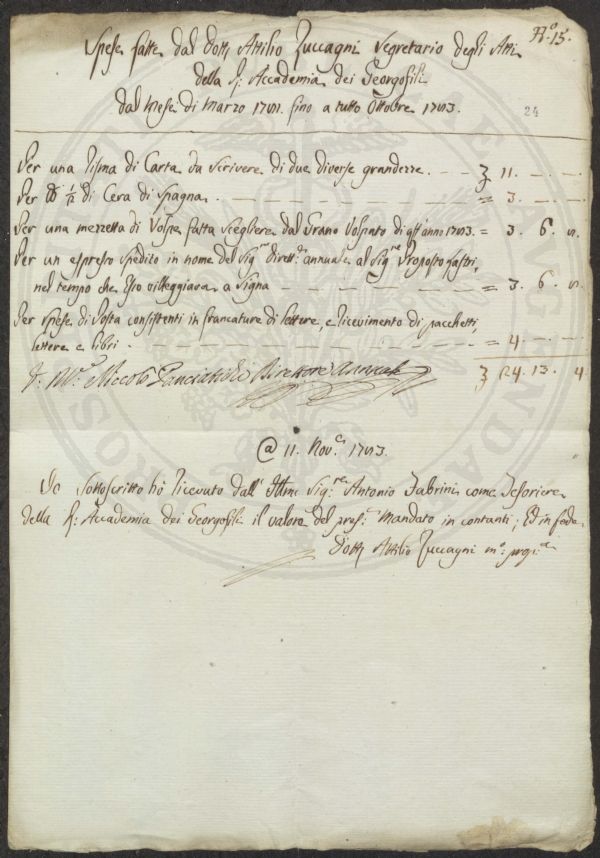 N.° 15.
Spese fatte dal Dott. Attilio Zuccagni Segretario degli Atti
della R: Accademia dei Georgofili
dal Mese di Marzo fino a tutto Ottobre
24
Per una Risma di Carta da scrivere di due diverse grandezze. - - £ 11. - . -
Per ℔ ½ di Cera di Spagna. - - - = 3. - . -
Per una mezzetta di Volpe fatta scegliere dal Grano Volpato di qst' anno = 3. 6. 8.
Per un espresso spedito in nome del Sig.re Dirett.e annuale al Sig.re Proposto Lastri,
nel tempo che Esso villeggiava a Signa - - - = 3. 6. 8.
Per spese di Posta consistenti in francature di lettere, e ricevimento di pacchetti,
lettere e libri. - - - = 4. - . -
Niccolò Panciatichi Direttore Annuale £ 24. 13. 4
@ 11. Nov.e
Io Sottoscritto hò ricevuto dall' Illmo Sig.re Antonio Fabrini come Tesoriere
della R: Accademia dei Georgofili il valore del pres.e Mandato in contanti, Ed in fede
Dott. Attilio Zuccagni m.o prop.a